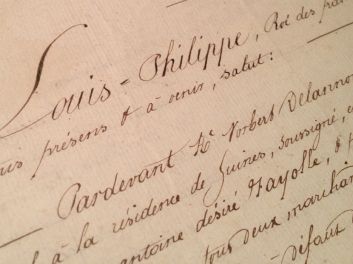 Louis = Philippe, Roi des fran
ous présens & à venir, salut:
Pardevant Me Norbert Delanno
à la résidence de Guines, soussigné,
antoine désiré Hayolle, &
tous deux marchan
défaut